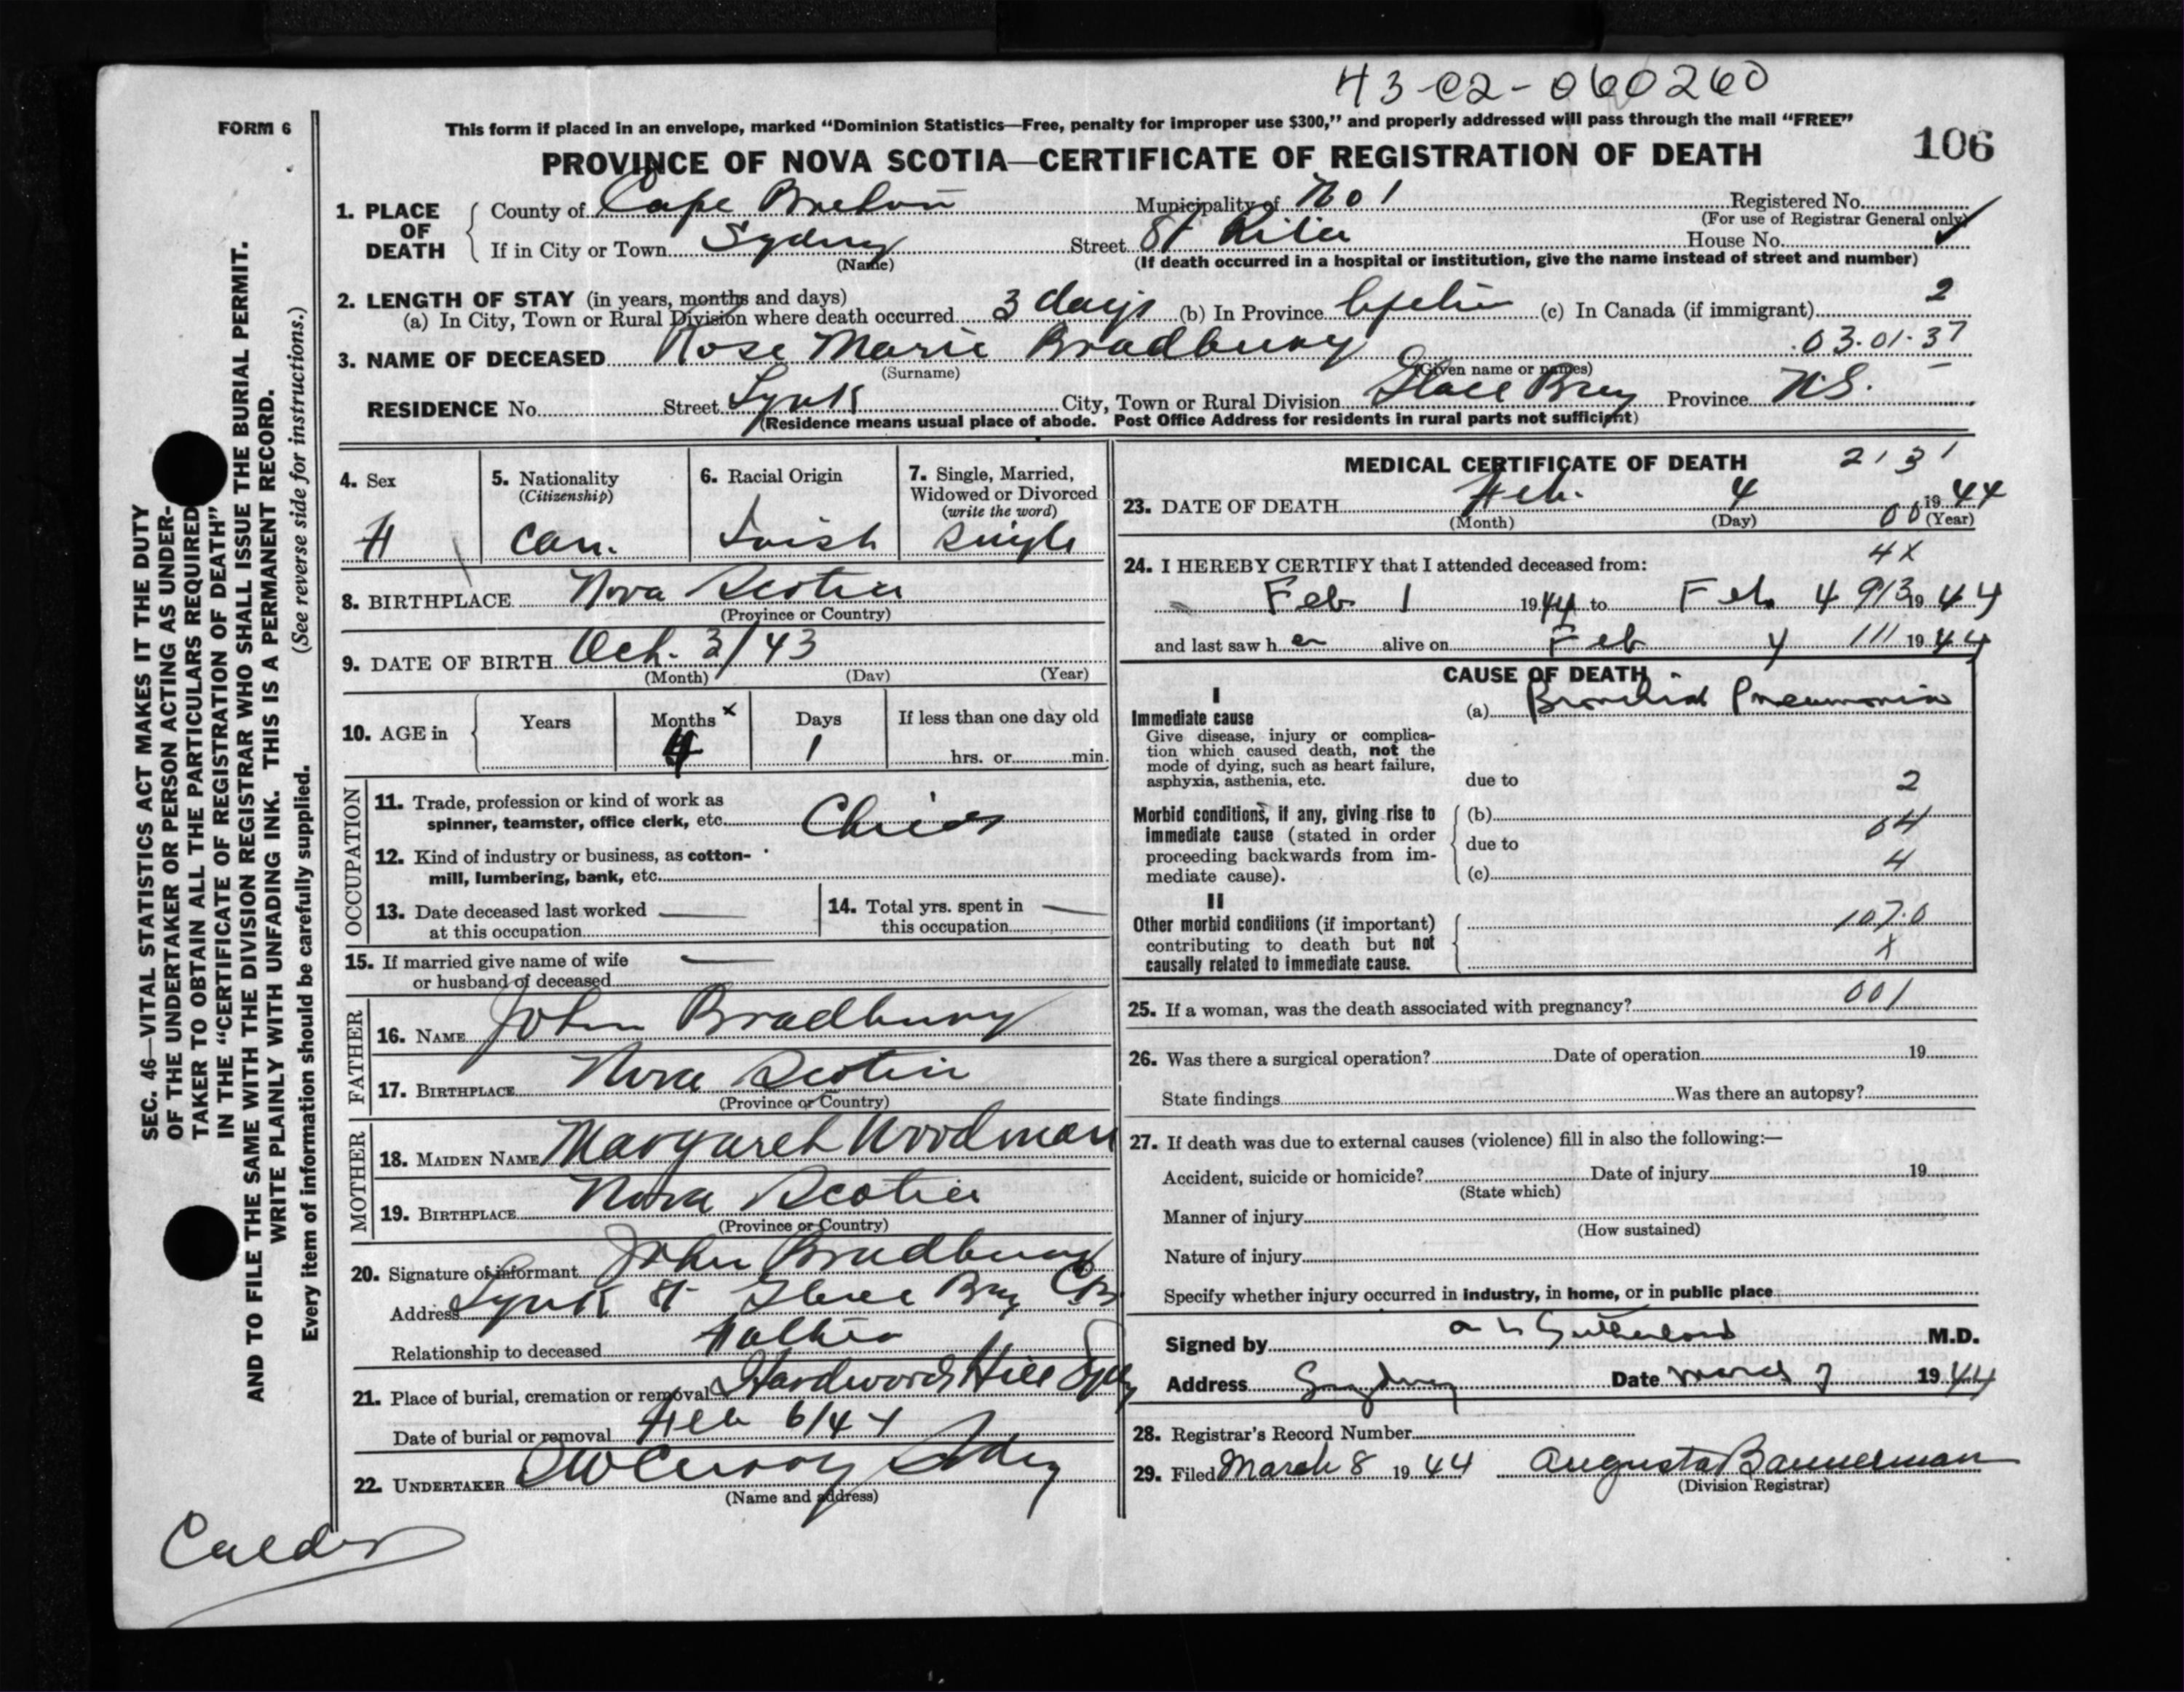 43-02-060260
FORM 6
This form if placed in an envelope, marked “Dominion Statistics—Free, penalty for improper use $300,” and properly addressed will pass through the mail “FREE”
PROVINCE OF NOVA SCOTIA—CERTIFICATE OF REGISTRATION OF DEATH
106
1. PLACE OF DEATH
County of Cape Breton Municipality of No 1 Registered No.
(For use of Registrar General only)
If in City or Town Sydney Street St Rita House No.
(Name) (If death occurred in a hospital or institution, give the name instead of street and number)
2. LENGTH OF STAY (in years, months and days)
(a) In City, Town or Rural Division where death occurred 3 days (b) In Province Lifetime (c) In Canada (if immigrant) 2
3. NAME OF DECEASED Rose Marie Bradbury 03.01.37
(Surname) (Given name or names)
RESIDENCE No. Street Lynk City, Town or Rural Division Glace Bay Province N.S.
(Residence means usual place of abode. Post Office Address for residents in rural parts not sufficient)
4. Sex
F
5. Nationality
(Citizenship)
Can.
6. Racial Origin
Irish
7. Single, Married,
Widowed or Divorced
(write the word)
Single
8. BIRTHPLACE Nova Scotia
(Province or Country)
9. DATE OF BIRTH Oct. 3/43
(Month) (Day) (Year)
10. AGE in
Years Months x Days If less than one day old
4 1 hrs. or min.
OCCUPATION
11. Trade, profession or kind of work as
spinner, teamster, office clerk, etc. Child
12. Kind of industry or business, as cotton-
mill, lumbering, bank, etc.
13. Date deceased last worked
at this occupation
14. Total yrs. spent in
this occupation
15. If married give name of wife
or husband of deceased
FATHER
16. NAME John Bradbury
17. BIRTHPLACE Nova Scotia
(Province or Country)
MOTHER
18. MAIDEN NAME Margaret Woodman
19. BIRTHPLACE Nova Scotia
(Province or Country)
20. Signature of informant John Bradbury
Address Lynk St Glace Bay CB
Relationship to deceased Father
21. Place of burial, cremation or removal Hardwood Hill Sydney
Date of burial or removal Feb 6/44
22. UNDERTAKER Sydney
(Name and address)
MEDICAL CERTIFICATE OF DEATH 2131
23. DATE OF DEATH Feb. 4 1944
(Month) (Day) 00 (Year)
4X
24. I HEREBY CERTIFY that I attended deceased from:
Feb 1 1944 to Feb. 4 913 1944
and last saw her alive on Feb 4 111 1944
CAUSE OF DEATH
I
Immediate cause
Give disease, injury or complica-
tion which caused death, not the
mode of dying, such as heart failure,
asphyxia, asthenia, etc.
(a) Bronchial Pneumonia
due to 2
Morbid conditions, if any, giving rise to
immediate cause (stated in order
proceeding backwards from im-
mediate cause).
(b) 04
due to
(c) 4
II
Other morbid conditions (if important)
contributing to death but not
causally related to immediate cause.
107.0
X
25. If a woman, was the death associated with pregnancy? 001
26. Was there a surgical operation? Date of operation 19
State findings Was there an autopsy?
27. If death was due to external causes (violence) fill in also the following:—
Accident, suicide or homicide? Date of injury 19
(State which)
Manner of injury
(How sustained)
Nature of injury
Specify whether injury occurred in industry, in home, or in public place
Signed by Sutherland M.D.
Address Sydney Date March 7 1944
28. Registrar's Record Number
29. Filed March 8 1944 Augusta Bannerman
(Division Registrar)
SEC. 46—VITAL STATISTICS ACT MAKES IT THE DUTY
OF THE UNDERTAKER OR PERSON ACTING AS UNDER-
TAKER TO OBTAIN ALL THE PARTICULARS REQUIRED
IN THE “CERTIFICATE OF REGISTRATION OF DEATH”
AND TO FILE THE SAME WITH THE DIVISION REGISTRAR WHO SHALL ISSUE THE BURIAL PERMIT.
WRITE PLAINLY WITH UNFADING INK. THIS IS A PERMANENT RECORD.
Every item of information should be carefully supplied. (See reverse side for instructions.)